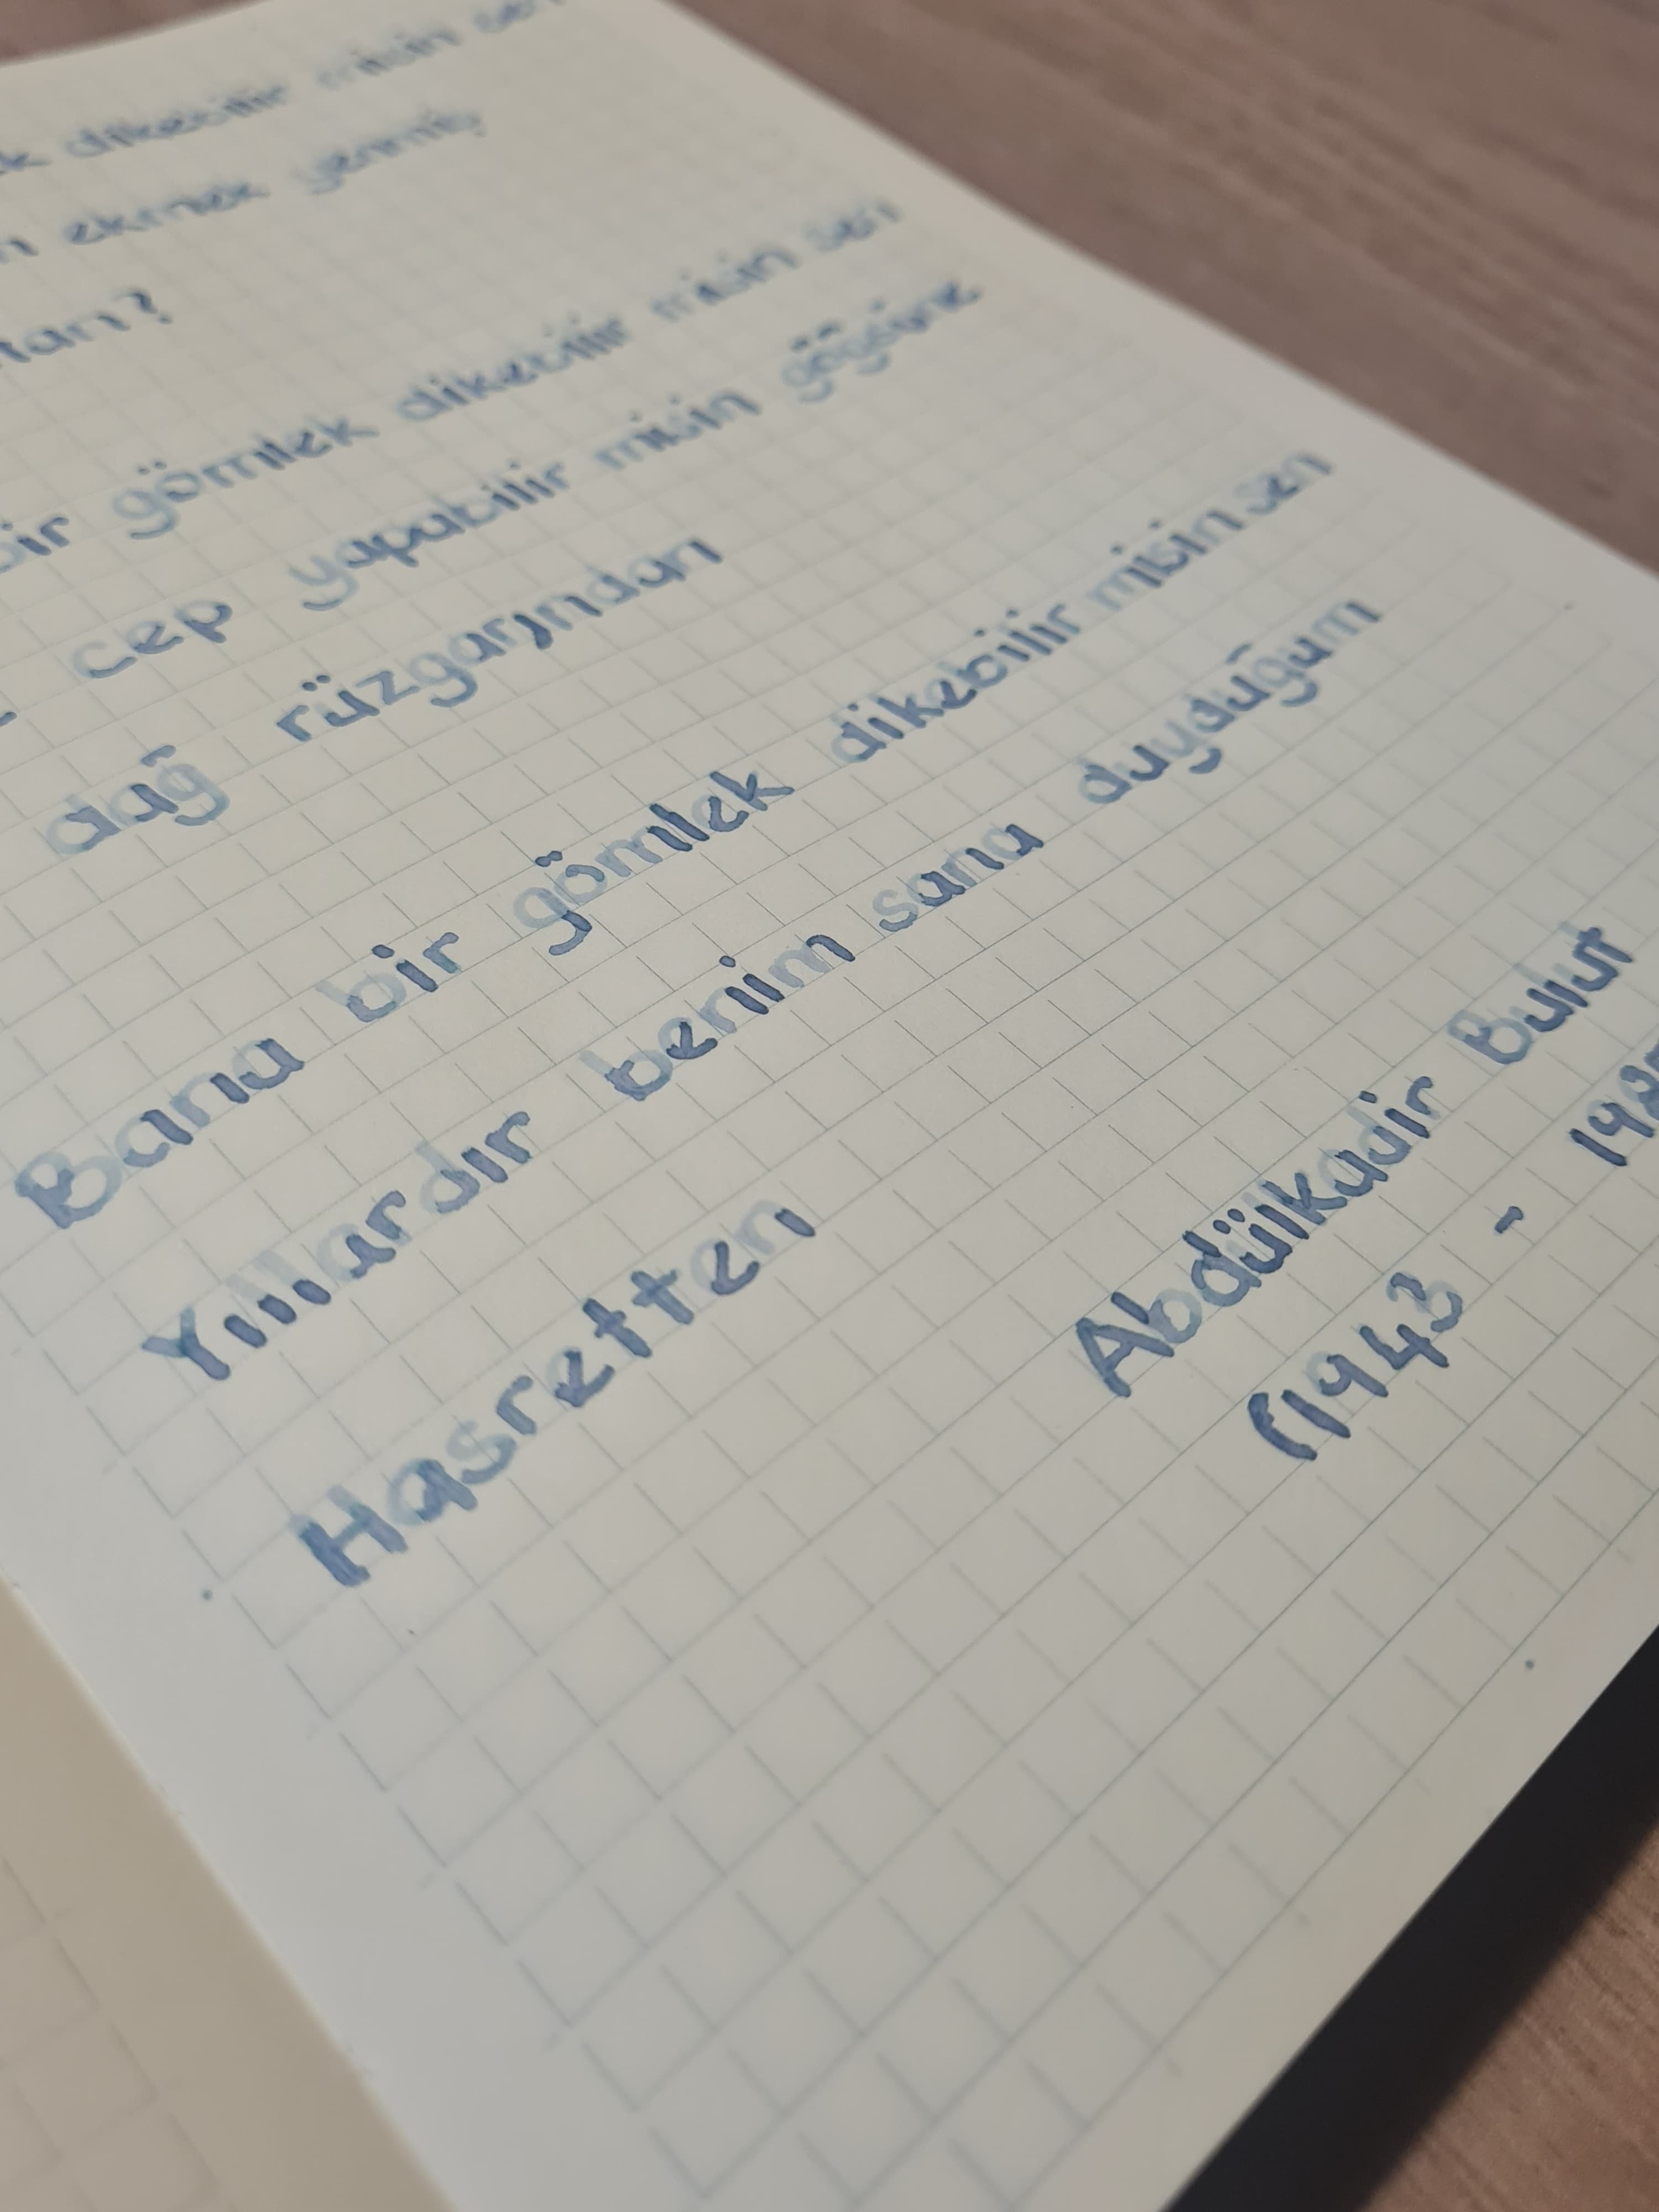 dikebilir misin sen
ekmek yenmiş
bir gömlek dikebilir misin sen
cep yapabilir misin göğsüne
dağ rüzgarından
Bana bir gömlek dikebilir misin sen
Yıllardır benim sana duyduğum
Hasretten
Abdülkadir Bulut
(1943 -